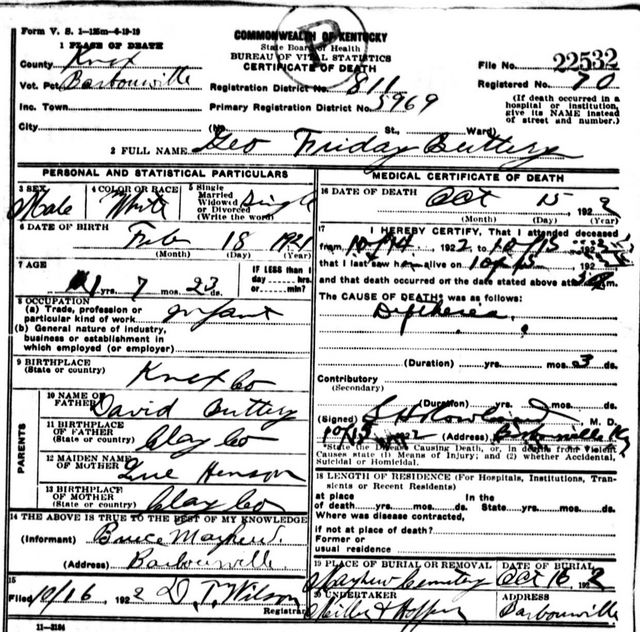 Form V. S. 1-125m-6-19-19
COMMONWEALTH OF KENTUCKY
State Board of Health
BUREAU OF VITAL STATISTICS
CERTIFICATE OF DEATH
1 PLACE OF DEATH
County Knox
Vot. Pct. Barbourville
Inc. Town
City
Registration District No. 811
Primary Registration District No. 5969
(No. St., Ward)
File No. 22532
Registered No. 70
(If death occurred in a hospital or institution, give its NAME instead of street and number.)
2 FULL NAME Geo Friday Buttery
PERSONAL AND STATISTICAL PARTICULARS
3 SEX Male
4 COLOR OR RACE White
5 Single Married Widowed or Divorced (Write the word) Single
6 DATE OF BIRTH Feb 18 1921
(Month) (Day) (Year)
7 AGE 1 yrs. 7 mos. 23 ds.
IF LESS than 1 day hrs. or min?
8 OCCUPATION
(a) Trade, profession or particular kind of work infant
(b) General nature of industry, business or establishment in which employed (or employer)
9 BIRTHPLACE (State or country) Knox Co
PARENTS
10 NAME OF FATHER David Buttery
11 BIRTHPLACE OF FATHER (State or country) Clay Co
12 MAIDEN NAME OF MOTHER Henson
13 BIRTHPLACE OF MOTHER (State or country) Clay Co
14 THE ABOVE IS TRUE TO THE BEST OF MY KNOWLEDGE
(Informant) Bruce
(Address) Barbourville
15
Filed 10/16 1922 D. T. Wilson
Registrar
11-3184
MEDICAL CERTIFICATE OF DEATH
16 DATE OF DEATH Oct 15 1922
(Month) (Day) (Year)
17 I HEREBY CERTIFY, That I attended deceased
from 10/14 1922 to 10/15 192
that I last saw him alive on 10/15 192
and that death occurred on the date stated above at
The CAUSE OF DEATH* was as follows:
Diptheria
(Duration) yrs. mos. 3 ds.
Contributory
(Secondary)
(Duration) yrs. mos. ds.
(Signed) M. D.
10/15 1922 (Address) Barbourville Ky
*State the Disease Causing Death, or, in deaths from Violent
Causes state (1) Means of Injury; and (2) whether Accidental,
Suicidal or Homicidal.
18 LENGTH OF RESIDENCE (For Hospitals, Institutions, Transients or Recent Residents)
At place of death yrs. mos. ds. In the State yrs. mos. ds.
Where was disease contracted,
if not at place of death?
Former or
usual residence
19 PLACE OF BURIAL OR REMOVAL Mayhew Cemetery
DATE OF BURIAL Oct 16 1922
20 UNDERTAKER
ADDRESS Barbourville